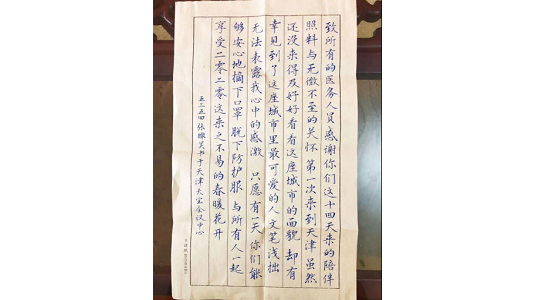 致所有的医务人员感谢你们这十四天来的陪伴
照料与无微不至的关怀 第一次来到天津 虽然
还没来得及好好看看这座城市的面貌 却有
幸见到了这座城市里最可爱的人 文笔浅拙
无法表露我心中的感激 只愿有一天你们能
够安心地摘下口罩 脱下防护服 与所有人一起
享受二零二零这来之不易的春暖花开
五三五四 张 吴书于天津天宝会议中心